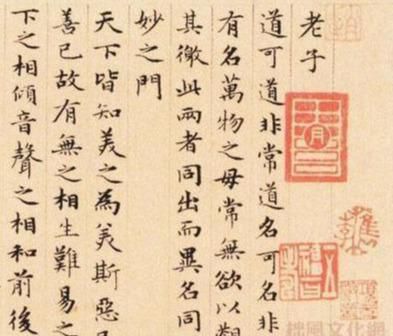 老子
道可道非常道名可名非
有名萬物之母常無欲以觀
其徼此兩者同出而異名同
妙之門
天下皆知美之為美斯惡
善已故有無之相生難易之
下之相傾音聲之相和前後